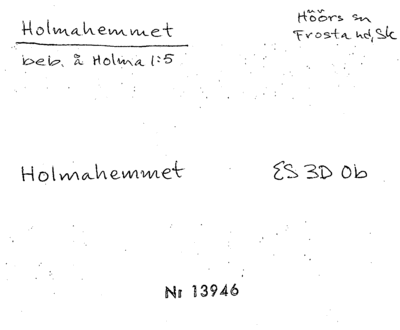 Holmahemmet
Höörs sn
Frosta hd, Sk
beb. å Holma 1:5
Holmahemmet
ES 3D 0b
Nr 13946